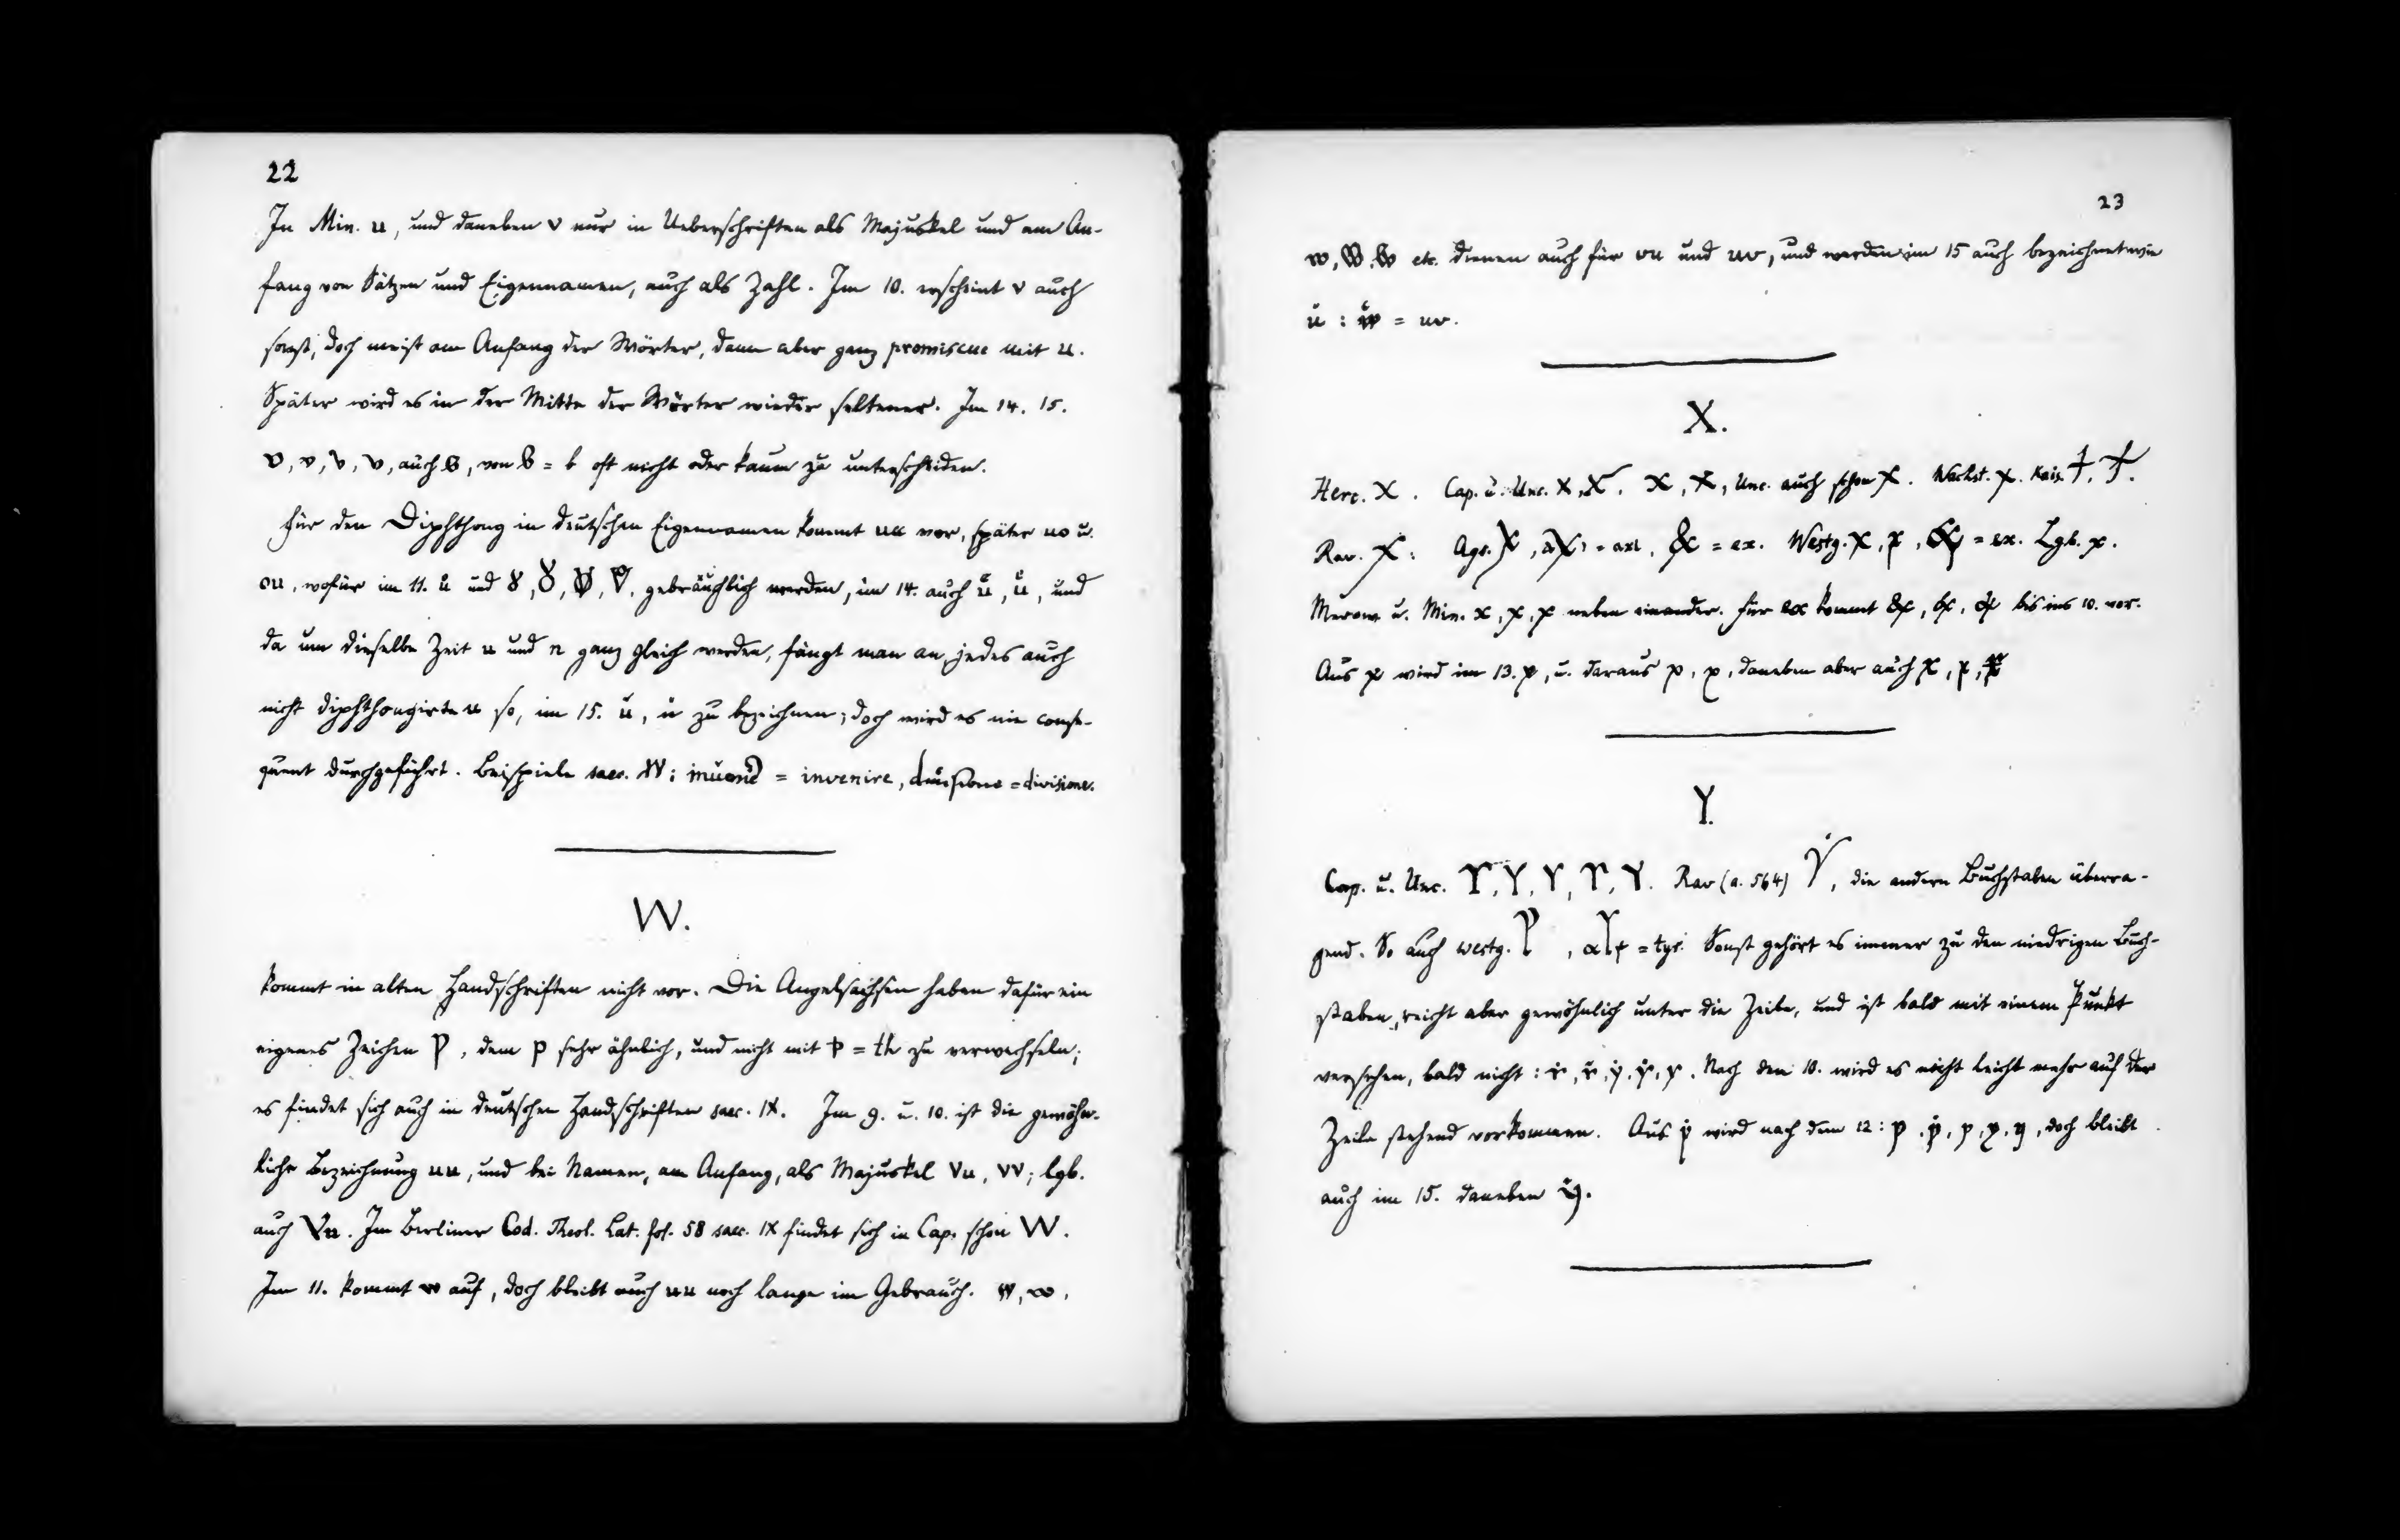 22
In Min. u, und daneben v nur in Ueberschriften als Majuskel und am An-
fang von Sätzen und Eigennamen, auch als Zahl. Im 10. erscheint v auch
sonst, doch meist am Anfang der Wörter, dann aber ganz promiscue mit u.
Später wird es in der Mitte der Wörter wieder seltener. Im 14. 15.
v, v, v, v, auch, von = b oft nicht oder kaum zu unterscheiden.
Für den Diphthong in deutschen Eigennamen kommt uu vor, später uo u.
ou, wofür im 11. ů und gebräuchlich werden, im 14. auch ů, ů, und
da um dieselbe Zeit u und n ganz gleich werden, fängt man an, jedes auch
nicht diphthongirte u so, im 15. zu bezeichnen; doch wird es nie conse-
quent durchgeführt. Beispiele saec. = invenire, = divisione.
W.
kommt in alten Handschriften nicht vor. Die Angelsachsen haben dafür ein
eigenes Zeichen ƿ, dem p sehr ähnlich, und nicht mit þ = th zu verwechseln;
es findet sich auch in deutschen Handschriften saec. IX. Im 9. u. 10. ist die gewöhn-
liche Bezeichnung uu, und bei Namen, am Anfang, als Majuskel Vu, VV; lgb.
auch Vu. Im Berliner Cod. Theol. Lat. fol. 58 saec. IX findet sich in Cap. schon W.
Im 11. kommt w auf, doch bleibt auch uu noch lange im Gebrauch. w, w,
23
w, etc. dienen auch für vu und uv, und werden im 15 auch bezeichnet wie
= uv.
X.
Herc. X. Cap. u. Unc. X, X, X, X, Unc. auch schon X. Wachst. x. Kais.
Rav. X: Ags. x, axi = axi, = ex. Westg. x, x, = ex. Lgb. x.
Merow. u. Min. x, x, x neben einander. Für ex kommt bis ins 10. vor.
Aus x wird im 13. x, u. daraus daneben aber auch x, x,
Y.
Cap. u. Unc. Y, Y, Y, Y, Y. Rav (a. 564) Y, die andern Buchstaben überra-
gend. So auch westg. = tyr. Sonst gehört es immer zu den niedrigen Buch-
staben, reicht aber gewöhnlich unter die Zeile, und ist bald mit einem Punkt
versehen, bald nicht: ẏ, ẏ, ẏ, ẏ, y. Nach dem 10. wird es nicht leicht mehr auf der
Zeile stehend vorkommen. Aus ẏ wird nach dem 12: doch bleibt
auch im 15. daneben ẏ.